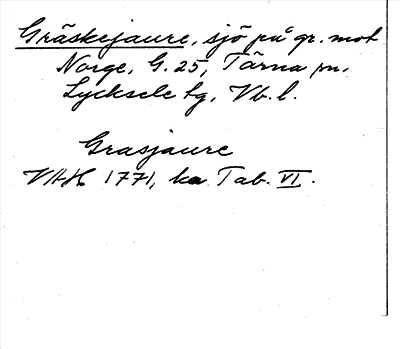 Gräskejaure, sjö på gr. mot
Norge, G. 25, Tärna sn,
Lycksele tg, Vb. l.
Grasjaure
VAH 1771, ka Tab. VI.